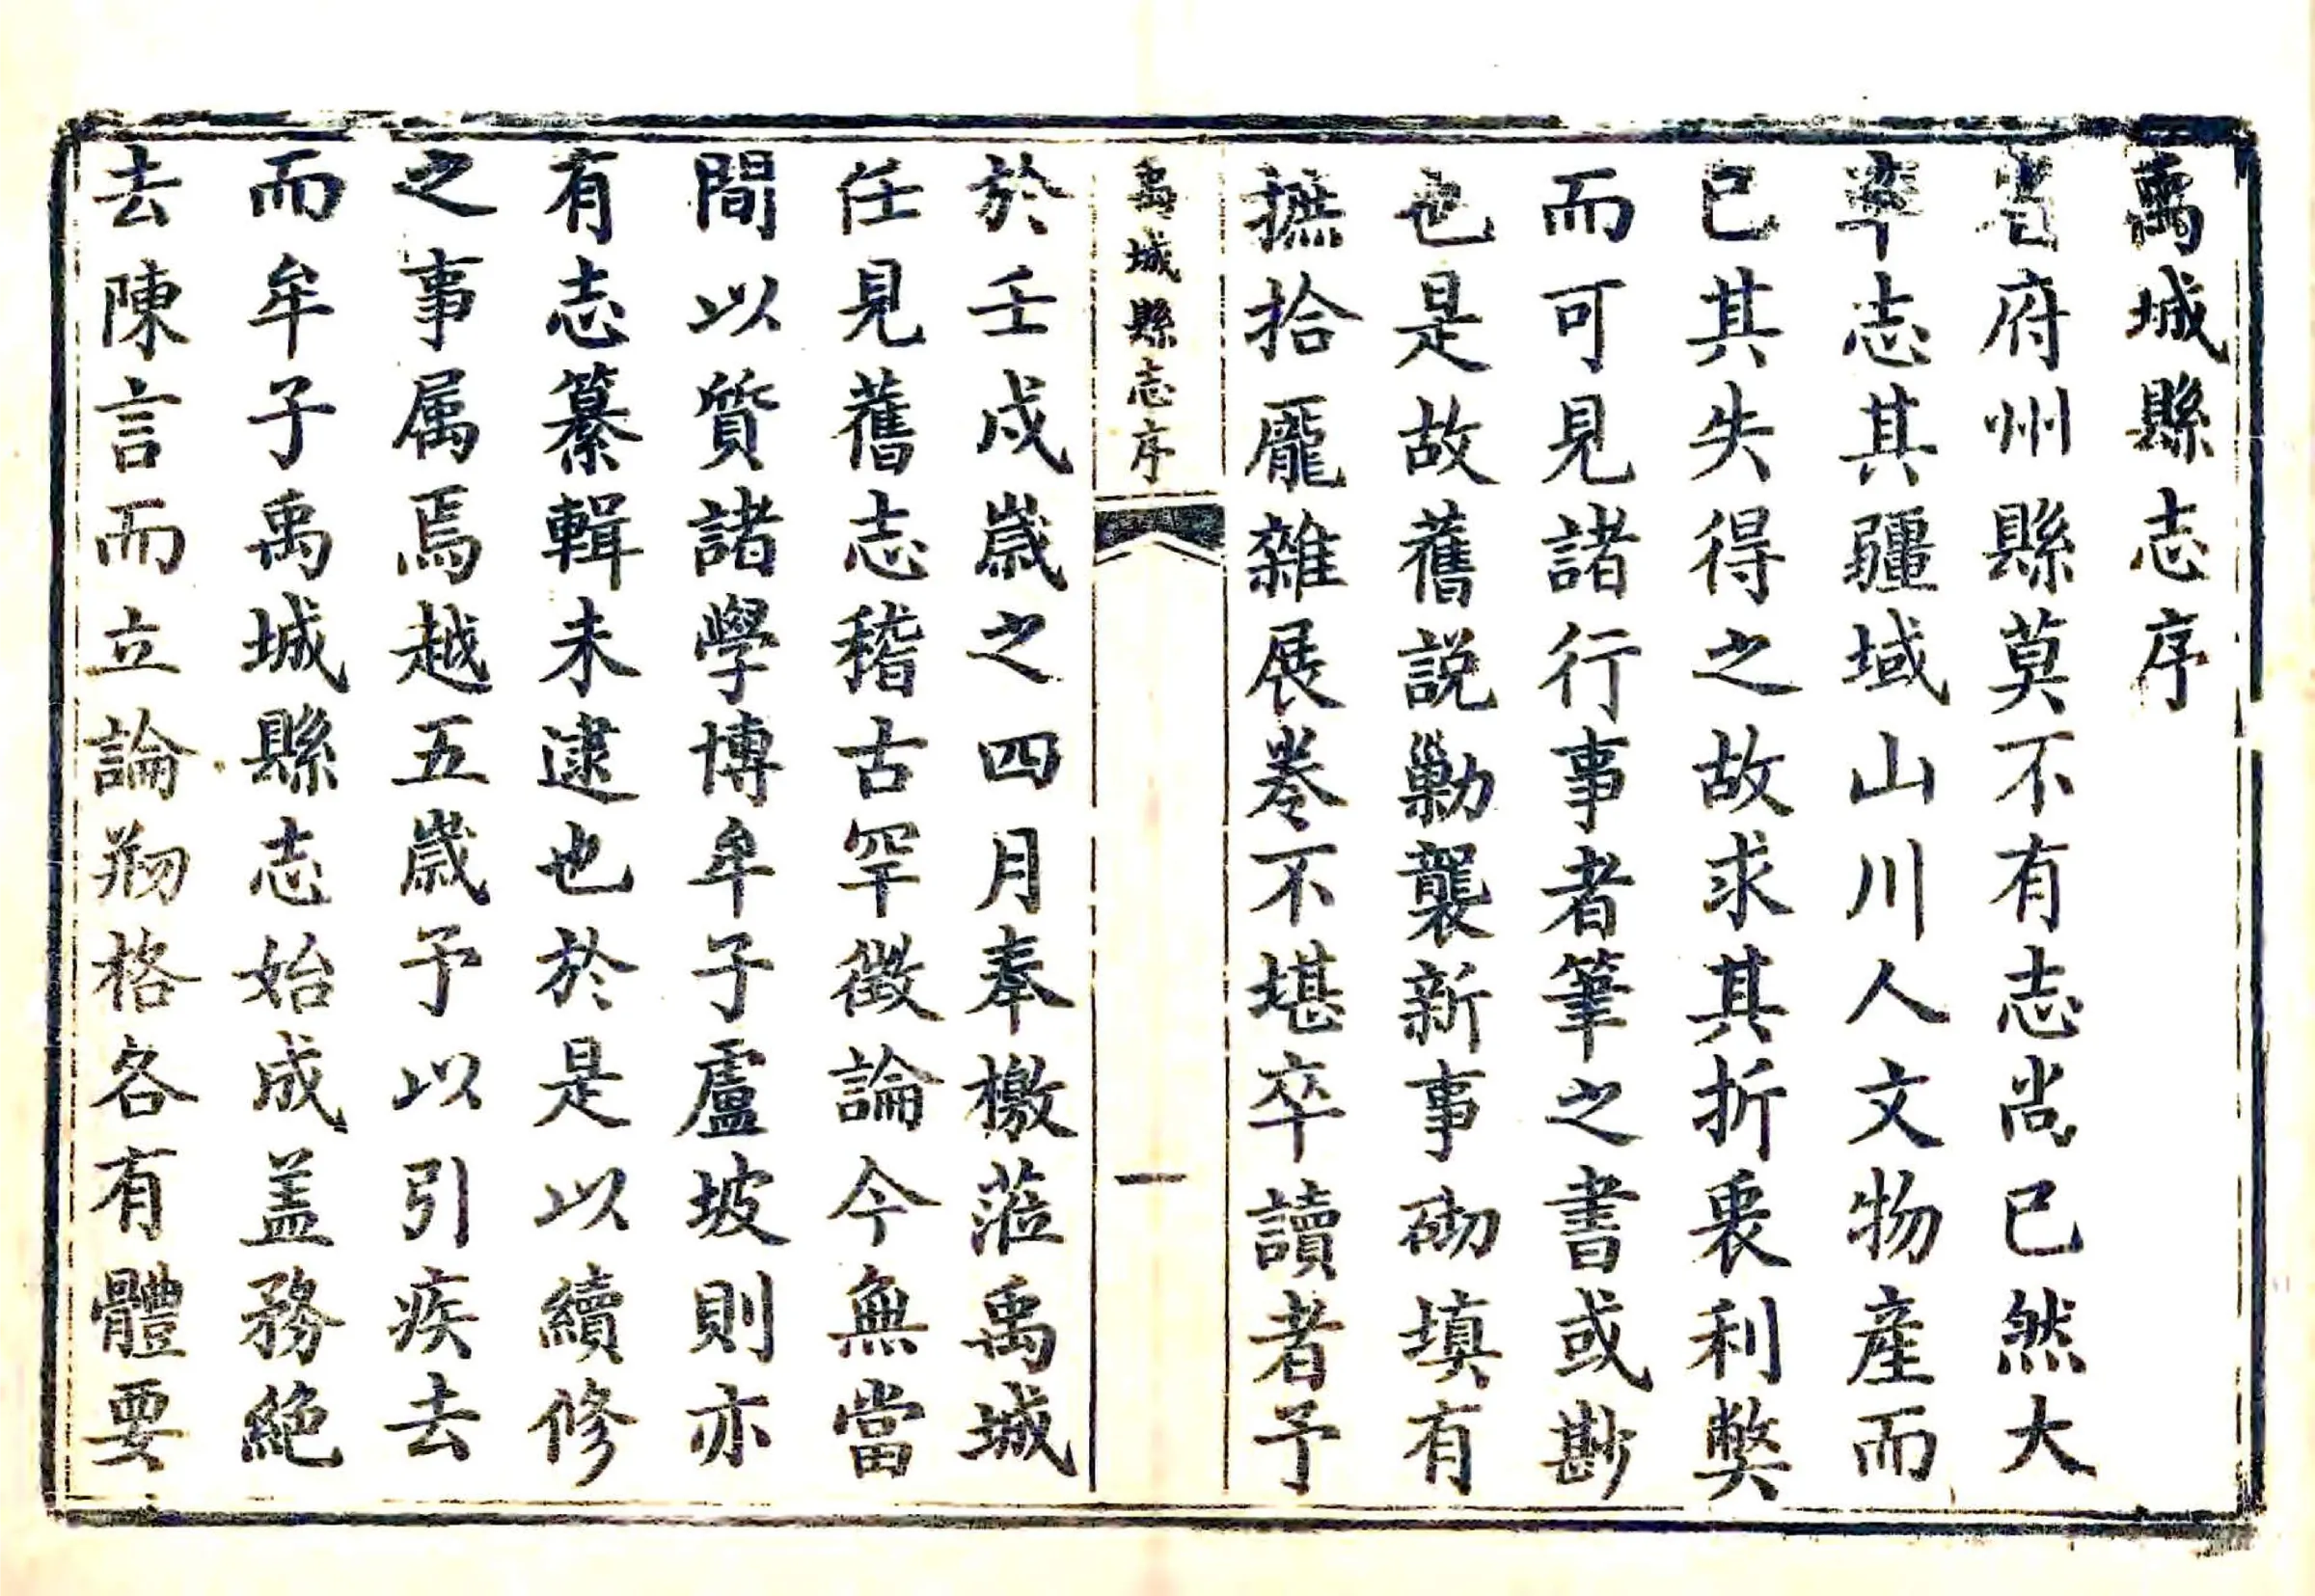 禹城縣志序
省府州縣莫不有志尚已然大
率志其疆域山川人文物產而
已其失得之故求其折衷利獘
而可見諸行事者筆之書或尠
也是故舊説勦襲新事砌填有
摭拾龎雜展卷不堪卒讀者予
禹城縣志序
一
於壬戌歲之四月奉檄蒞禹城
任見舊志稽古罕徵論今無當
間以質諸學博牟子盧坡則亦
有志纂輯未逮也於是以續修
之事属焉越五歲予以引疾去
而牟子禹城縣志始成盖務絕
去陳言而立論剏格各有體要